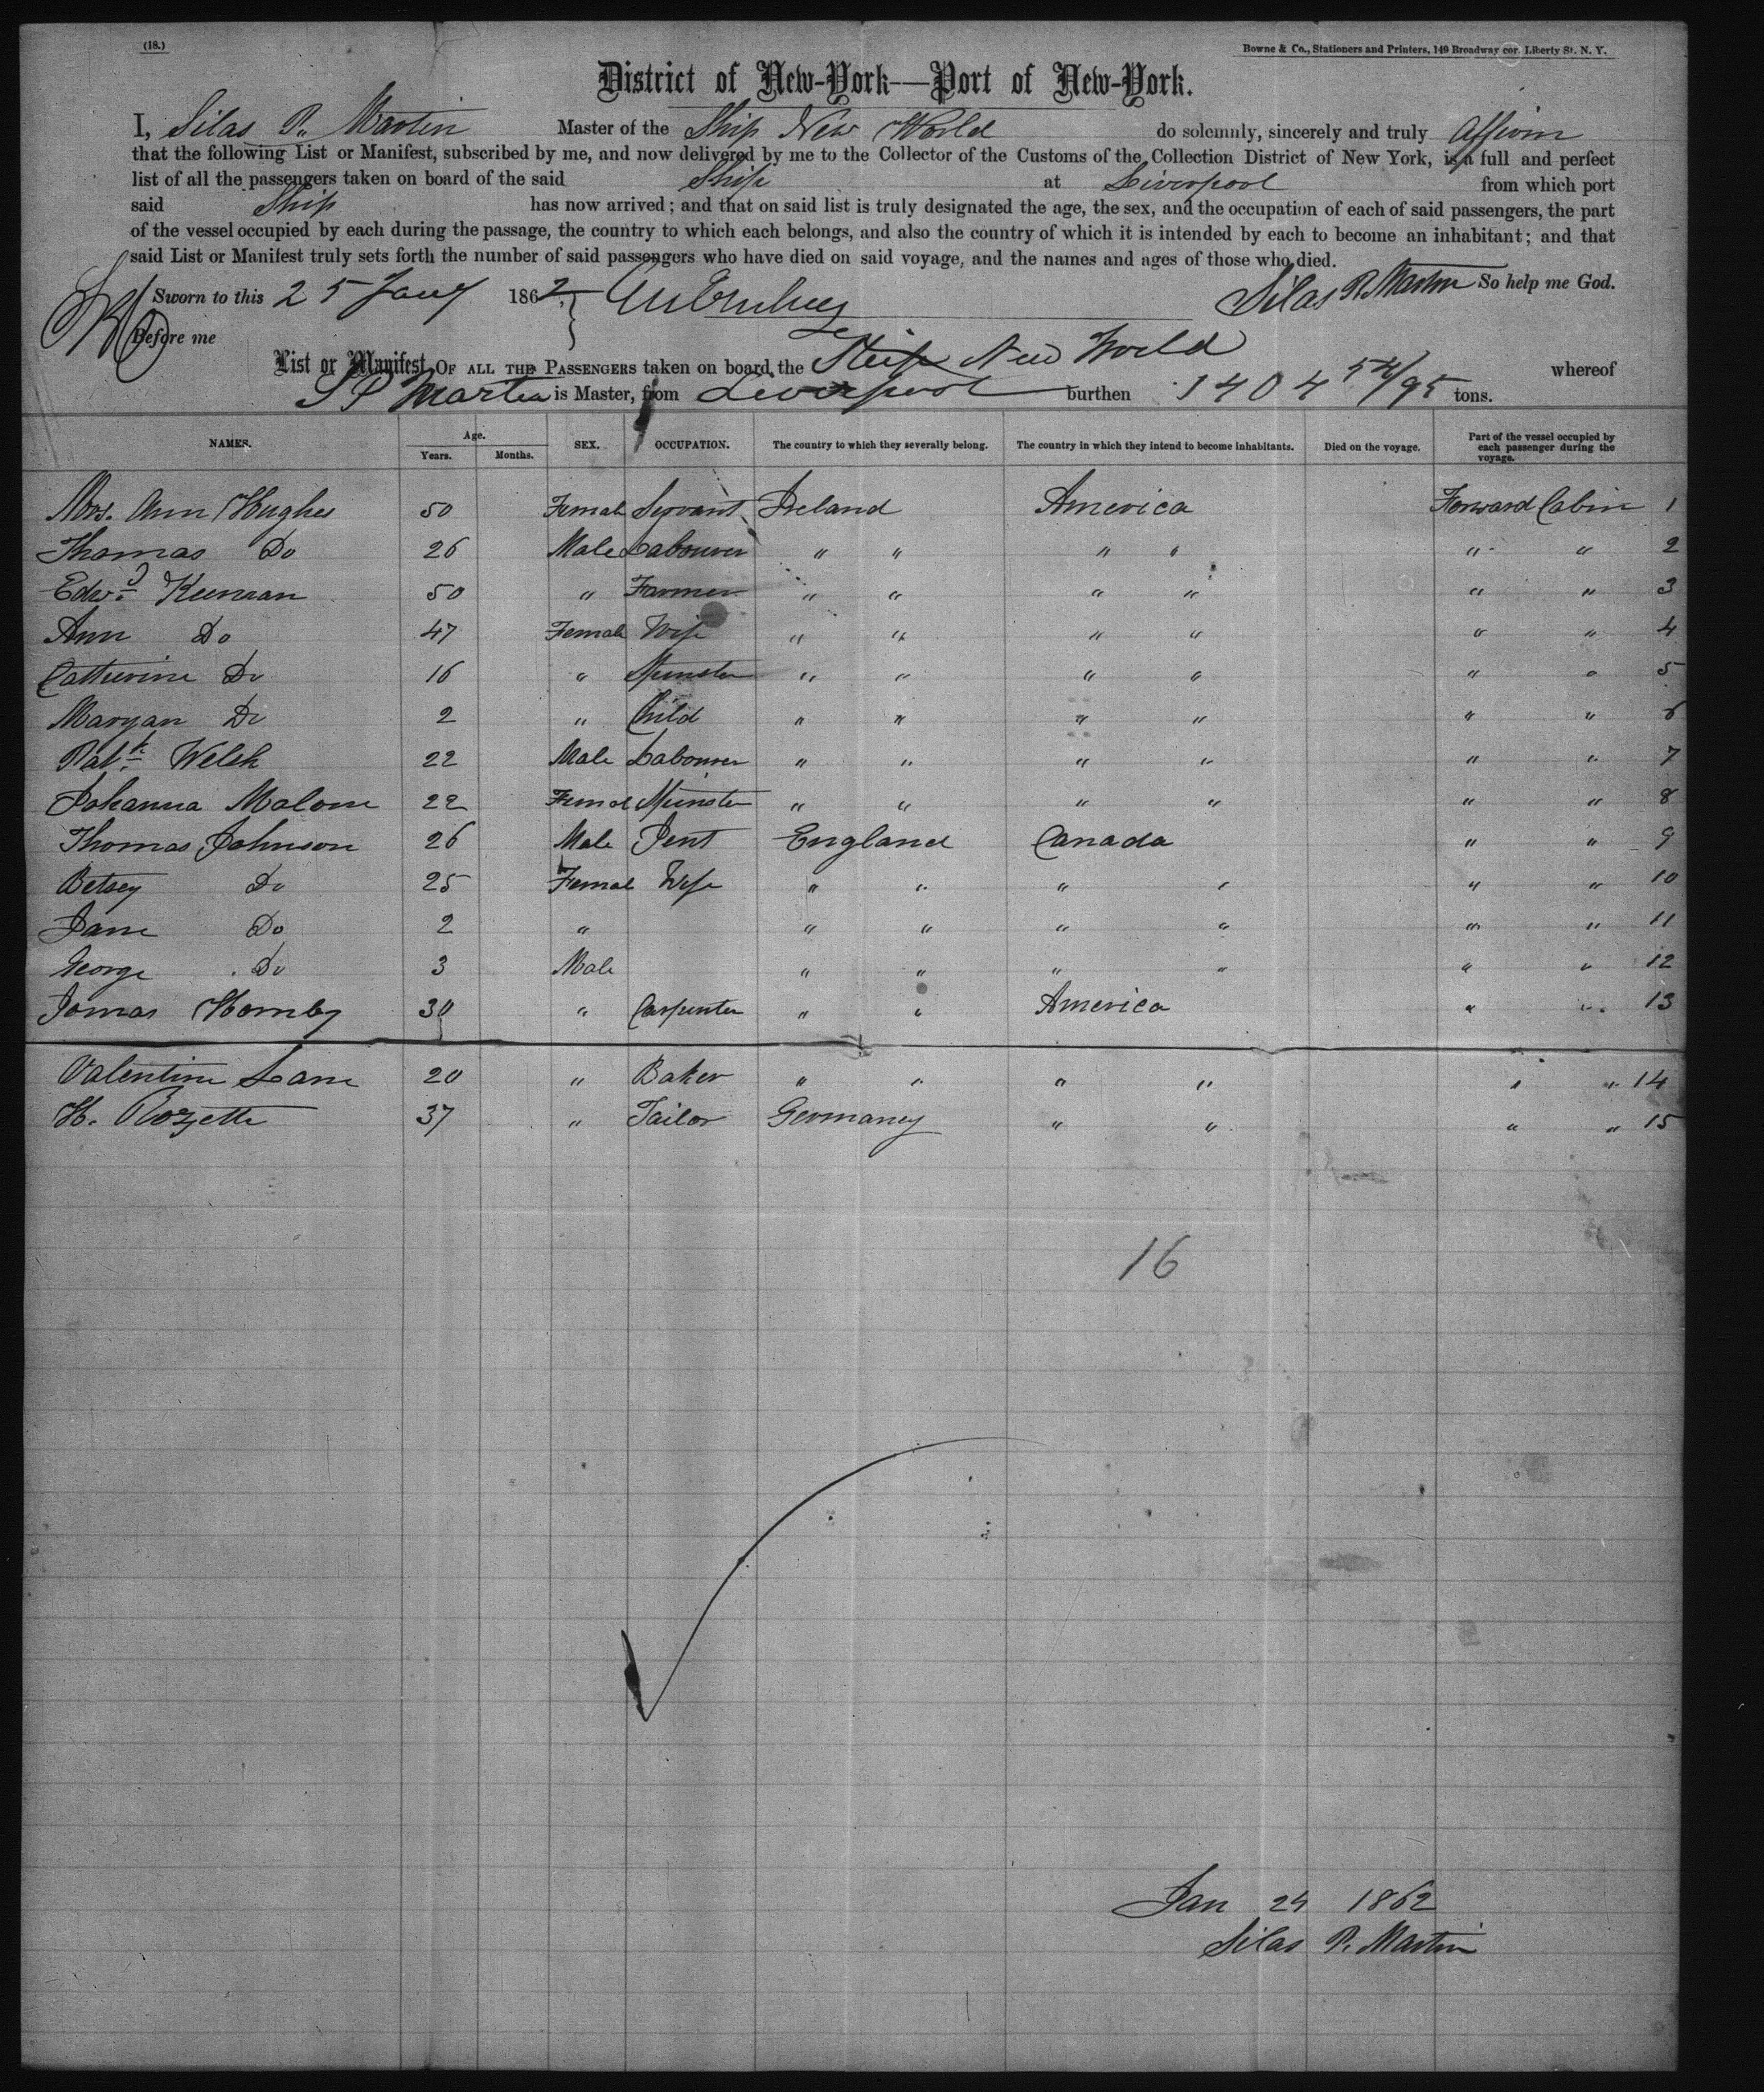 (18.)
Bowne & Co., Stationers and Printers, 149 Broadway cor. Liberty St. N. Y.
District of New-York—Port of New-York.
I, Silas P. Martin Master of the Ship New World do solemnly, sincerely and truly affirm
that the following List or Manifest, subscribed by me, and now delivered by me to the Collector of the Customs of the Collection District of New York, is a full and perfect
list of all the passengers taken on board of the said Ship at Liverpool from which port
said Ship has now arrived; and that on said list is truly designated the age, the sex, and the occupation of each of said passengers, the part
of the vessel occupied by each during the passage, the country to which each belongs, and also the country of which it is intended by each to become an inhabitant; and that
said List or Manifest truly sets forth the number of said passengers who have died on said voyage, and the names and ages of those who died.
Sworn to this 25 Jany 1862, Silas P. Martin So help me God.
Before me
List or Manifest OF ALL THE PASSENGERS taken on board the Ship New World whereof
S P Martin is Master, from Liverpool burthen 1404 54/95 tons.
NAMES. Age. Years. Months. SEX. OCCUPATION. The country to which they severally belong. The country in which they intend to become inhabitants. Died on the voyage. Part of the vessel occupied by each passenger during the voyage.
Mrs. Ann Hughes 50 Female Servant Ireland America Forward Cabin 1
Thomas Do 26 Male Labourer " " " " " " 2
Edwd. Keenan 50 " Farmer " " " " " " 3
Ann Do 47 Female Wife " " " " " " 4
Catherine Do 16 " Spinster " " " " " " 5
Maryan Do 2 " Child " " " " " " 6
Patk. Welsh 22 Male Labourer " " " " " " 7
Johanna Malone 22 Female Spinster " " " " " " 8
Thomas Johnson 26 Male Gent England Canada " " 9
Betsey Do 25 Female Wife " " " " " " 10
Jane Do 2 " " " " " " " 11
George Do 3 Male " " " " " " 12
James Hornby 30 " Carpenter " " America " " 13
Valentine Lane 20 " Baker " " " " " " 14
H. Rozette 37 " Tailor Germaney " " " " 15
16
Jan 24 1862
Silas P. Martin